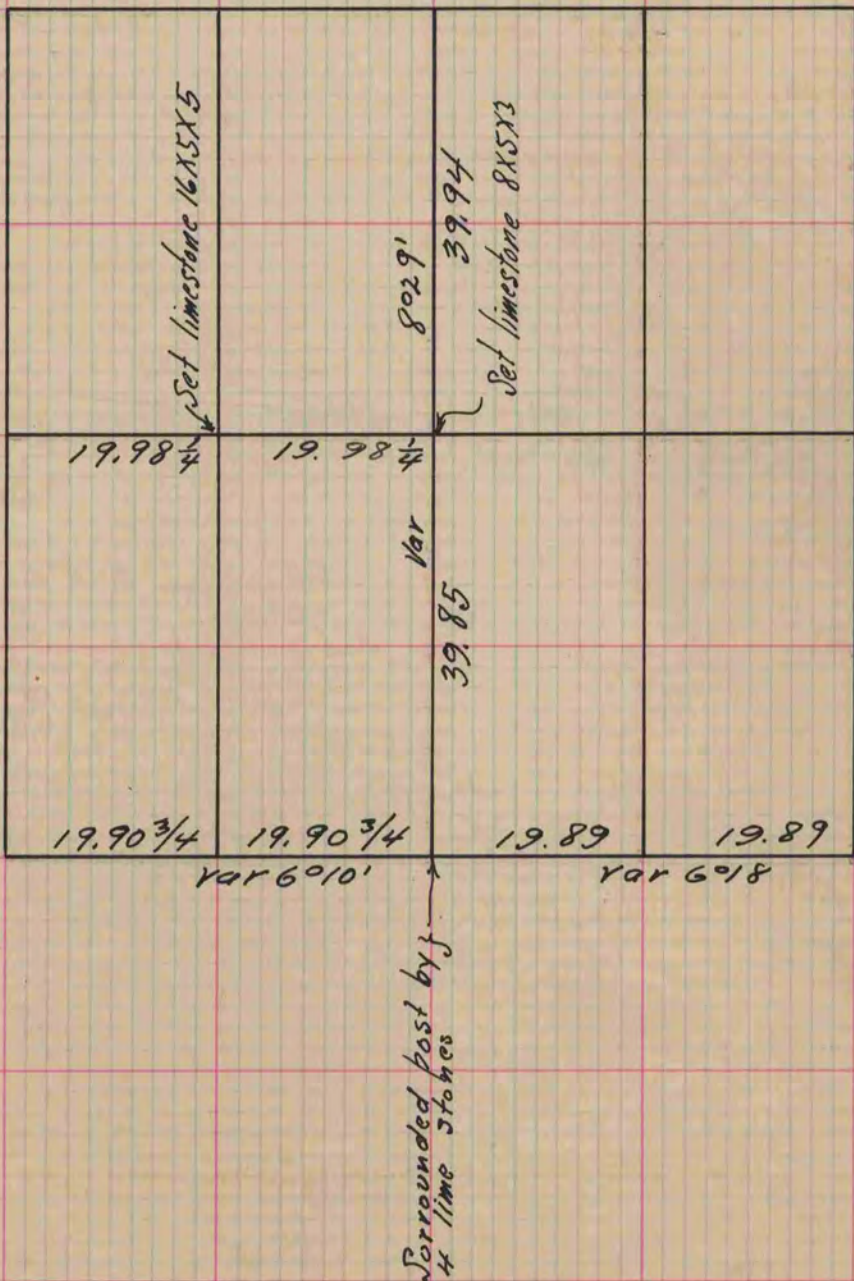 Set limestone 16X5X5
8°29'
39.94
Set limestone 8X5X3
19.98 1/4
19. 98 1/4
Var
39.85
19.90 3/4
19.90 3/4
19.89
19.89
var 6°10'
var 6°18
Sorrounded post by
4 lime stones